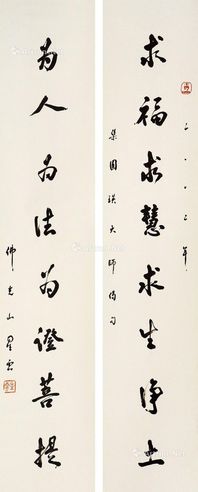 二〇〇三年
求福求慧求生淨土
集圓瑛大師偈句
為人為法為證菩提
佛光山星雲